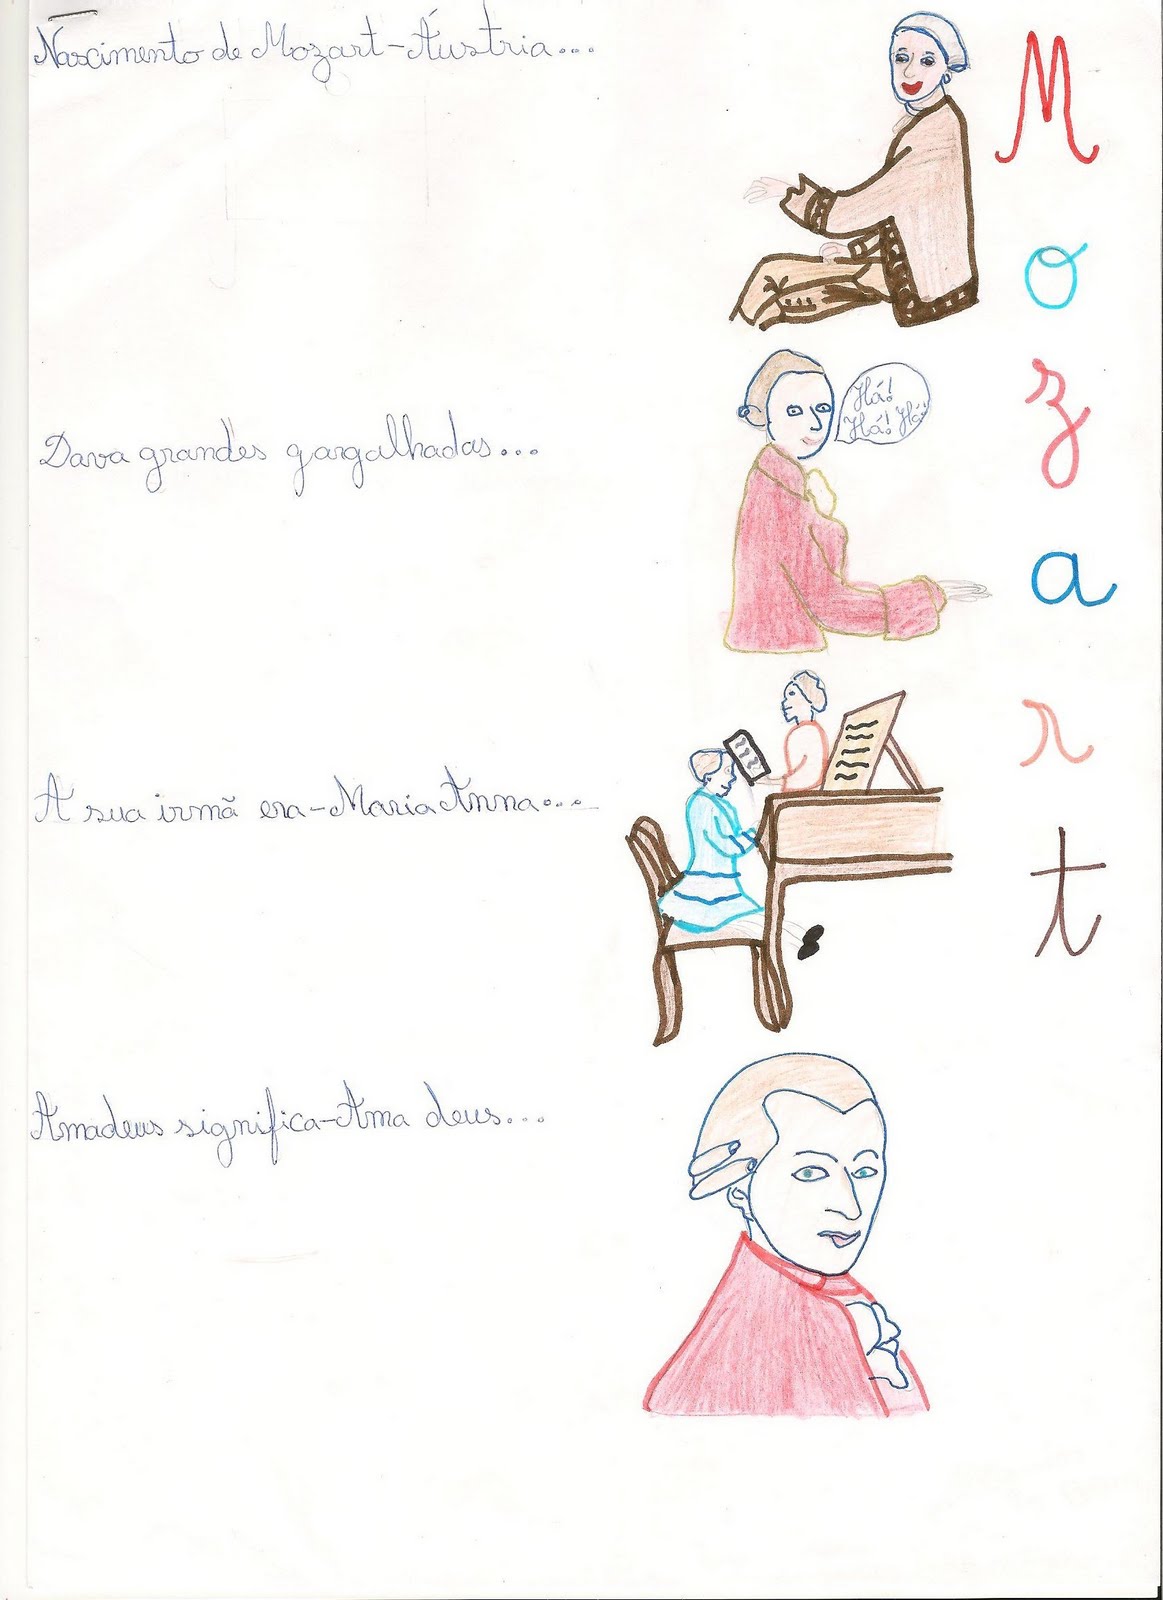 Nascimento de Mozart-Áustria...
Há!
Há! Há!
Dava grandes gargalhadas...
A sua irmã era-Maria Anna...
Amadeus significa-Ama deus...
M
o
z
a
r
t